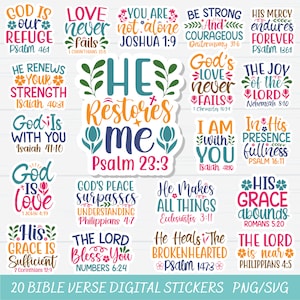 GOD IS
our
REFUGE
Psalm 46:1
LOVE
never
Fails
1 Corinthians 13:8
YOU ARE
not alone
JOSHUA 1:9
BE STRONG
And
COURAGEOUS
Deuteronomy 31:6
HIS MERCY
endures
FOREVER
Psalm 136:1
HE RENEWS
YOUR
STRENGTH
Isaiah 40:31
HE
Restores
ME
Psalm 23:3
God's
LOVE
never
FAILS
THE JOY
of the
LORD
Nehemiah 8:10
God IS
WITH YOU
Isaiah 41:10
I AM
with
YOU
Isaiah
In His
PRESENCE
fullness
PSALM 16:11
God
IS
Love
GOD'S PEACE
surpasses
UNDERSTANDING
Philippians 4:7
He Makes
ALL
THINGS
Ecclesiastes 3:11
HIS
GRACE
abounds
ROMANS 5:20
His
GRACE IS
Sufficient
2 Corinthians 12:9
THE LORD
Bless You
NUMBERS 6:24
He Heals The
BROKENHEARTED
Psalm 147:3
THE LORD
is near
PHILIPPIANS 4:5
20 BIBLE VERSE DIGITAL STICKERS PNG/SVG